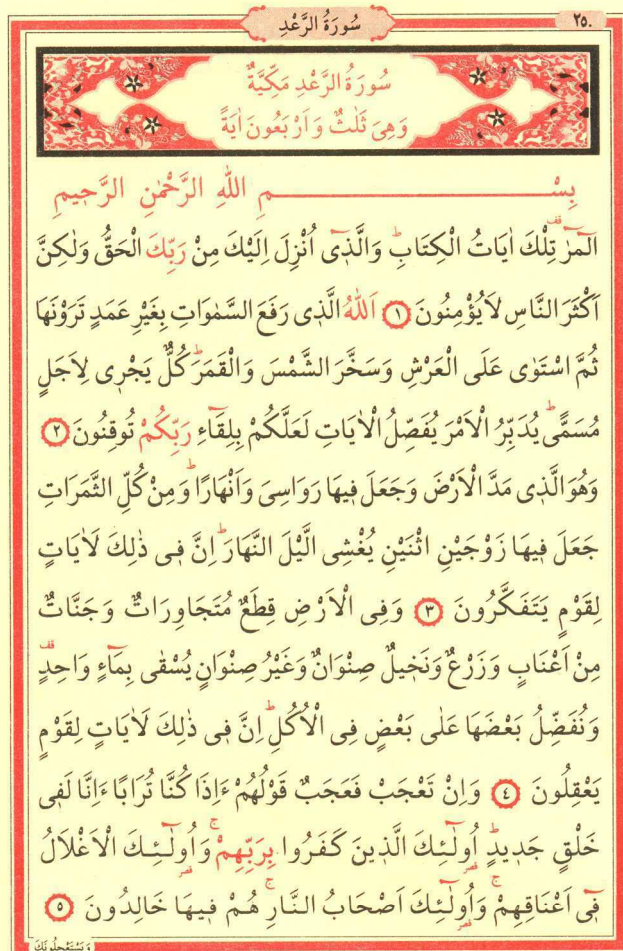 سُورَةُ الرَّعْدِ
٢٥٠
سُورَةُ الرَّعْدِ مَكِّيَّةٌ
وَهِىَ ثَلٰثٌ وَاَرْبَعُونَ اٰيَةً
بِسْــــــــــــــمِ اللّٰهِ الرَّحْمٰنِ الرَّحٖيمِ
الٓمٓرٰ قف تِلْكَ اٰيَاتُ الْكِتَابِؕ وَالَّذٖٓى اُنْزِلَ اِلَيْكَ مِنْ رَبِّكَ الْحَقُّ وَلٰكِنَّ
اَكْثَرَ النَّاسِ لَا يُؤْمِنُونَ ١ اَللّٰهُ الَّذٖى رَفَعَ السَّمٰوَاتِ بِغَيْرِ عَمَدٍ تَرَوْنَهَا
ثُمَّ اسْتَوٰى عَلَى الْعَرْشِ وَسَخَّرَ الشَّمْسَ وَالْقَمَرَؕ كُلٌّ يَجْرٖى لِاَجَلٍ
مُسَمًّىؕ يُدَبِّرُ الْاَمْرَ يُفَصِّلُ الْاٰيَاتِ لَعَلَّكُمْ بِلِقَٓاءِ رَبِّكُمْ تُوقِنُونَ ٢
وَهُوَ الَّذٖى مَدَّ الْاَرْضَ وَجَعَلَ فٖيهَا رَوَاسِىَ وَاَنْهَارًاؕ وَمِنْ كُلِّ الثَّمَرَاتِ
جَعَلَ فٖيهَا زَوْجَيْنِ اثْنَيْنِ يُغْشِى الَّيْلَ النَّهَارَؕ اِنَّ فٖى ذٰلِكَ لَاٰيَاتٍ
لِقَوْمٍ يَتَفَكَّرُونَ ٣ وَفِى الْاَرْضِ قِطَعٌ مُتَجَاوِرَاتٌ وَجَنَّاتٌ
مِنْ اَعْنَابٍ وَزَرْعٌ وَنَخٖيلٌ صِنْوَانٌ وَغَيْرُ صِنْوَانٍ يُسْقٰى بِمَٓاءٍ وَاحِدٍ قف
وَنُفَضِّلُ بَعْضَهَا عَلٰى بَعْضٍ فِى الْاُكُلِؕ اِنَّ فٖى ذٰلِكَ لَاٰيَاتٍ لِقَوْمٍ
يَعْقِلُونَ ٤ وَاِنْ تَعْجَبْ فَعَجَبٌ قَوْلُهُمْ ءَاِذَا كُنَّا تُرَابًا ءَاِنَّا لَفٖى
خَلْقٍ جَدٖيدٍؕ اُولٰٓئِكَ الَّذٖينَ كَفَرُوا بِرَبِّهِمْۚ وَاُولٰٓئِكَ الْاَغْلَالُ
فٖٓى اَعْنَاقِهِمْۚ وَاُولٰٓئِكَ اَصْحَابُ النَّارِۚ هُمْ فٖيهَا خَالِدُونَ ٥
وَيَسْتَعْجِلُونَكَ